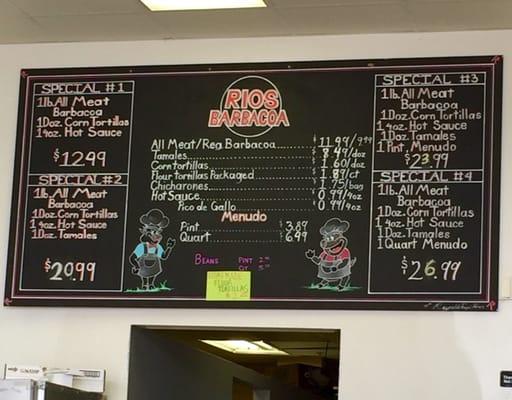 SPECIAL #1
1lb. All Meat
Barbacoa
1Doz. Corn Tortillas
1 4oz. Hot Sauce
$12.99
SPECIAL #2
1lb. All Meat
Barbacoa
1Doz. Corn Tortillas
1 4oz. Hot Sauce
1Doz. Tamales
$20.99
RIOS
BARBACOA
All Meat/Reg. Barbacoa $11.99/9.99
Tamales 8.99/doz
Corn tortillas 1.60/doz
Flour tortillas Packaged 1.89/ct
Chicharones 1.75/bag
Hot Sauce 0.99/4oz
Pico de Gallo 0.99/4oz
Menudo
Pint $3.89
Quart $6.99
BEANS PINT
QT
FLOUR
TORTILLAS
SPECIAL #3
1lb. All Meat
Barbacoa
1Doz. Corn Tortillas
1 4oz. Hot Sauce
1Doz. Tamales
1 Pint, Menudo
$23.99
SPECIAL #4
1lb. All Meat
Barbacoa
1Doz. Corn Tortillas
1 4oz. Hot Sauce
1Doz. Tamales
1Quart Menudo
$26.99